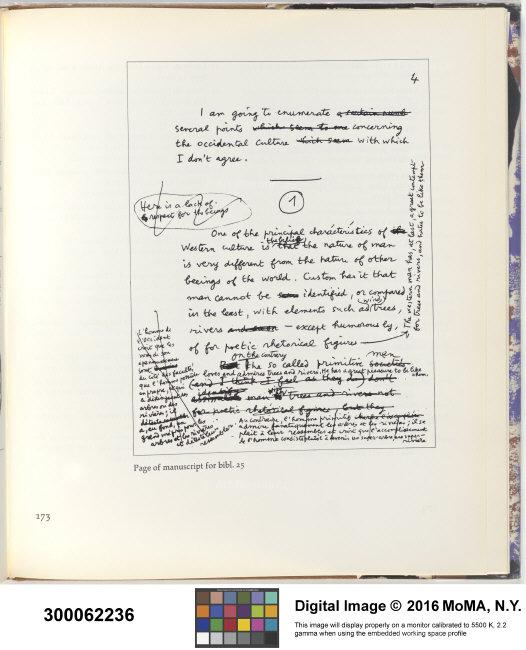 4
I am going to enumerate a certain
several points which seem to me concerning
the occidental culture which seem with which
I don't agree.
1
Here is a lack of
respect for the beings
One of the principal characteristics of the
Western culture is the belief that the nature of man
is very different from the nature of other
beeings of the world. Custom has it that
man cannot be identified, or compared
in the least, with elements such as winds, trees,
rivers — except humorously,
of for poetic rhetorical figures
The western man has, at last, a great contempt
for trees and rivers, and hates to be like them
on the contrary
the so called primitive societies men
loves and admires trees and rivers. He has a great pleasure to be like them.
(and I think I feel as they do) don't
man trees and rivers not
for poetic rhetorical figures, but they
l'homme de
l'occident
croit que les
que l'homme
en propre, et qui
arbres ou des
a, en fond, un
grand mépris pour les
arbres et les rivières
et déteste leur
ressembler.
Au contraire l'homme primitif
admire les arbres et les rivières; il se
plait à leur ressembler et croit que l'accomplissement
de l'homme
rivière
Page of manuscript for bibl. 25
173
300062236
Digital Image © 2016 MoMA, N.Y.
This image will display properly on a monitor calibrated to 5500 K, 2.2
gamma when using the embedded working space profile